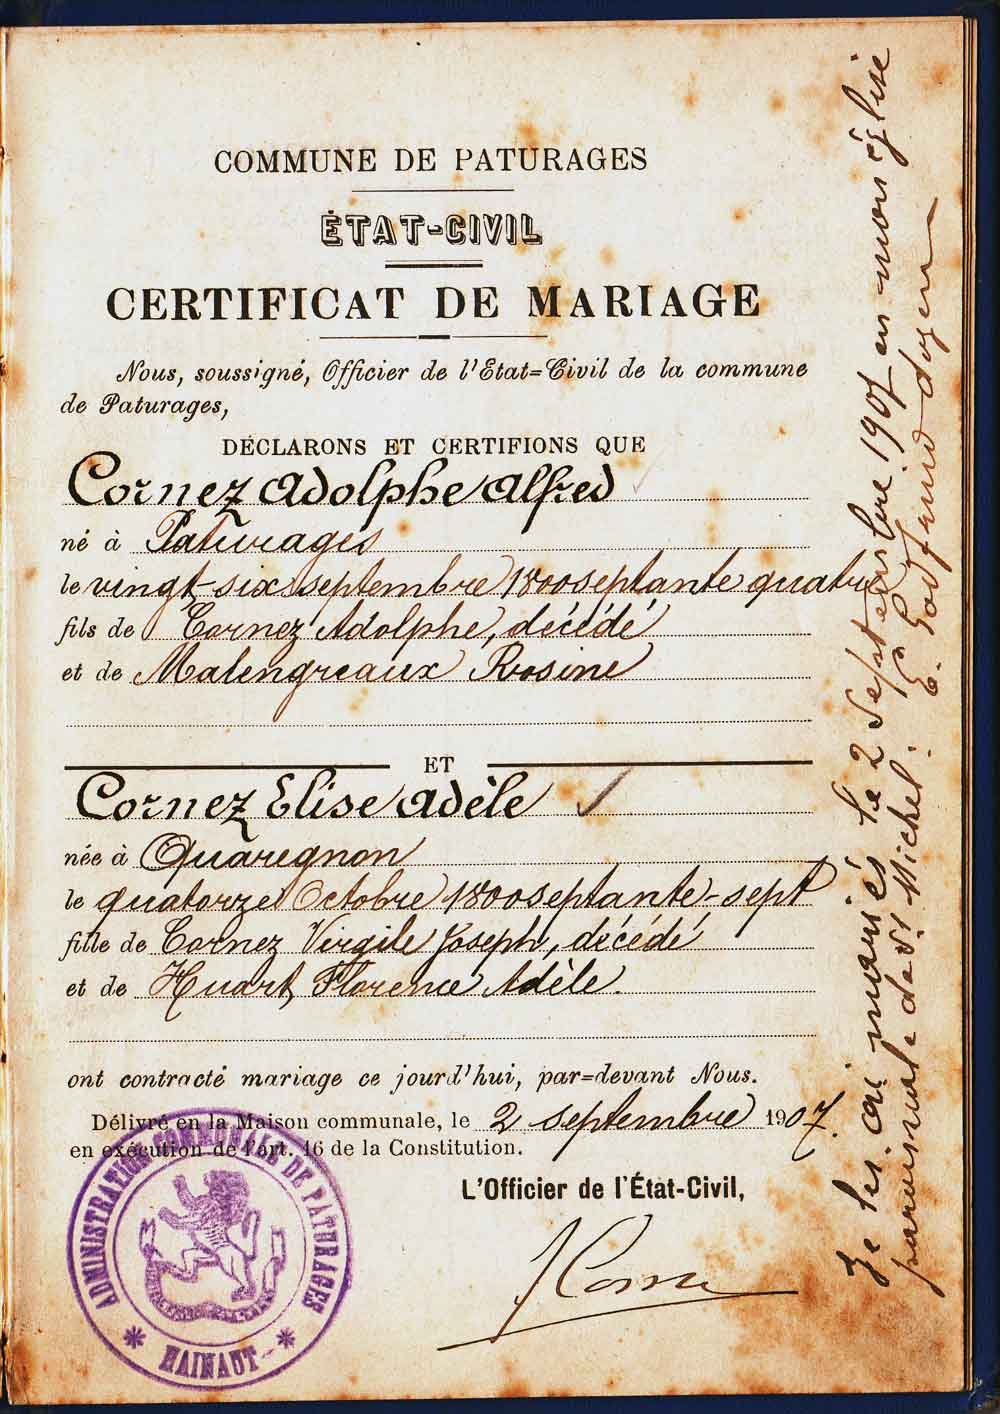 COMMUNE DE PATURAGES
ÉTAT-CIVIL
CERTIFICAT DE MARIAGE
Nous, soussigné, Officier de l'Etat=Civil de la commune
de Paturages,
DÉCLARONS ET CERTIFIONS QUE
Cornez Adolphe Alfred
né à Paturages
le vingt-six septembre 1800 septante quatre
fils de Cornez Adolphe, décédé
et de Malengreaux Rosine
ET
Cornez Elise Adèle
née à Quaregnon
le quatorze Octobre 1800 septante-sept
fille de Cornez Virgile Joseph, décédé
et de Huart Florence Adèle.
ont contracté mariage ce jourd'hui, par=devant Nous.
Délivré en la Maison communale, le 2 septembre 1907.
en exécution de l'art. 16 de la Constitution.
L'Officier de l'État-Civil,
ADMINISTRATION COMMUNALE DE PATURAGES
* HAINAUT *
Je les ai mariés le 2 Septembre 1907 en mon église
paroissiale de St Michel.
E. Godfrind doyen